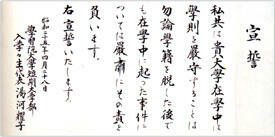 宣誓
私共は貴大學在學中
學則を厳守することは
勿論學籍を脱した後で
も在學中に起つた事件に
ついては厳粛にその責を
負います。
右宣誓いたします。
昭和三十五年四月十八日
學習院大學短期大學部
入学生代表 湯河耀子